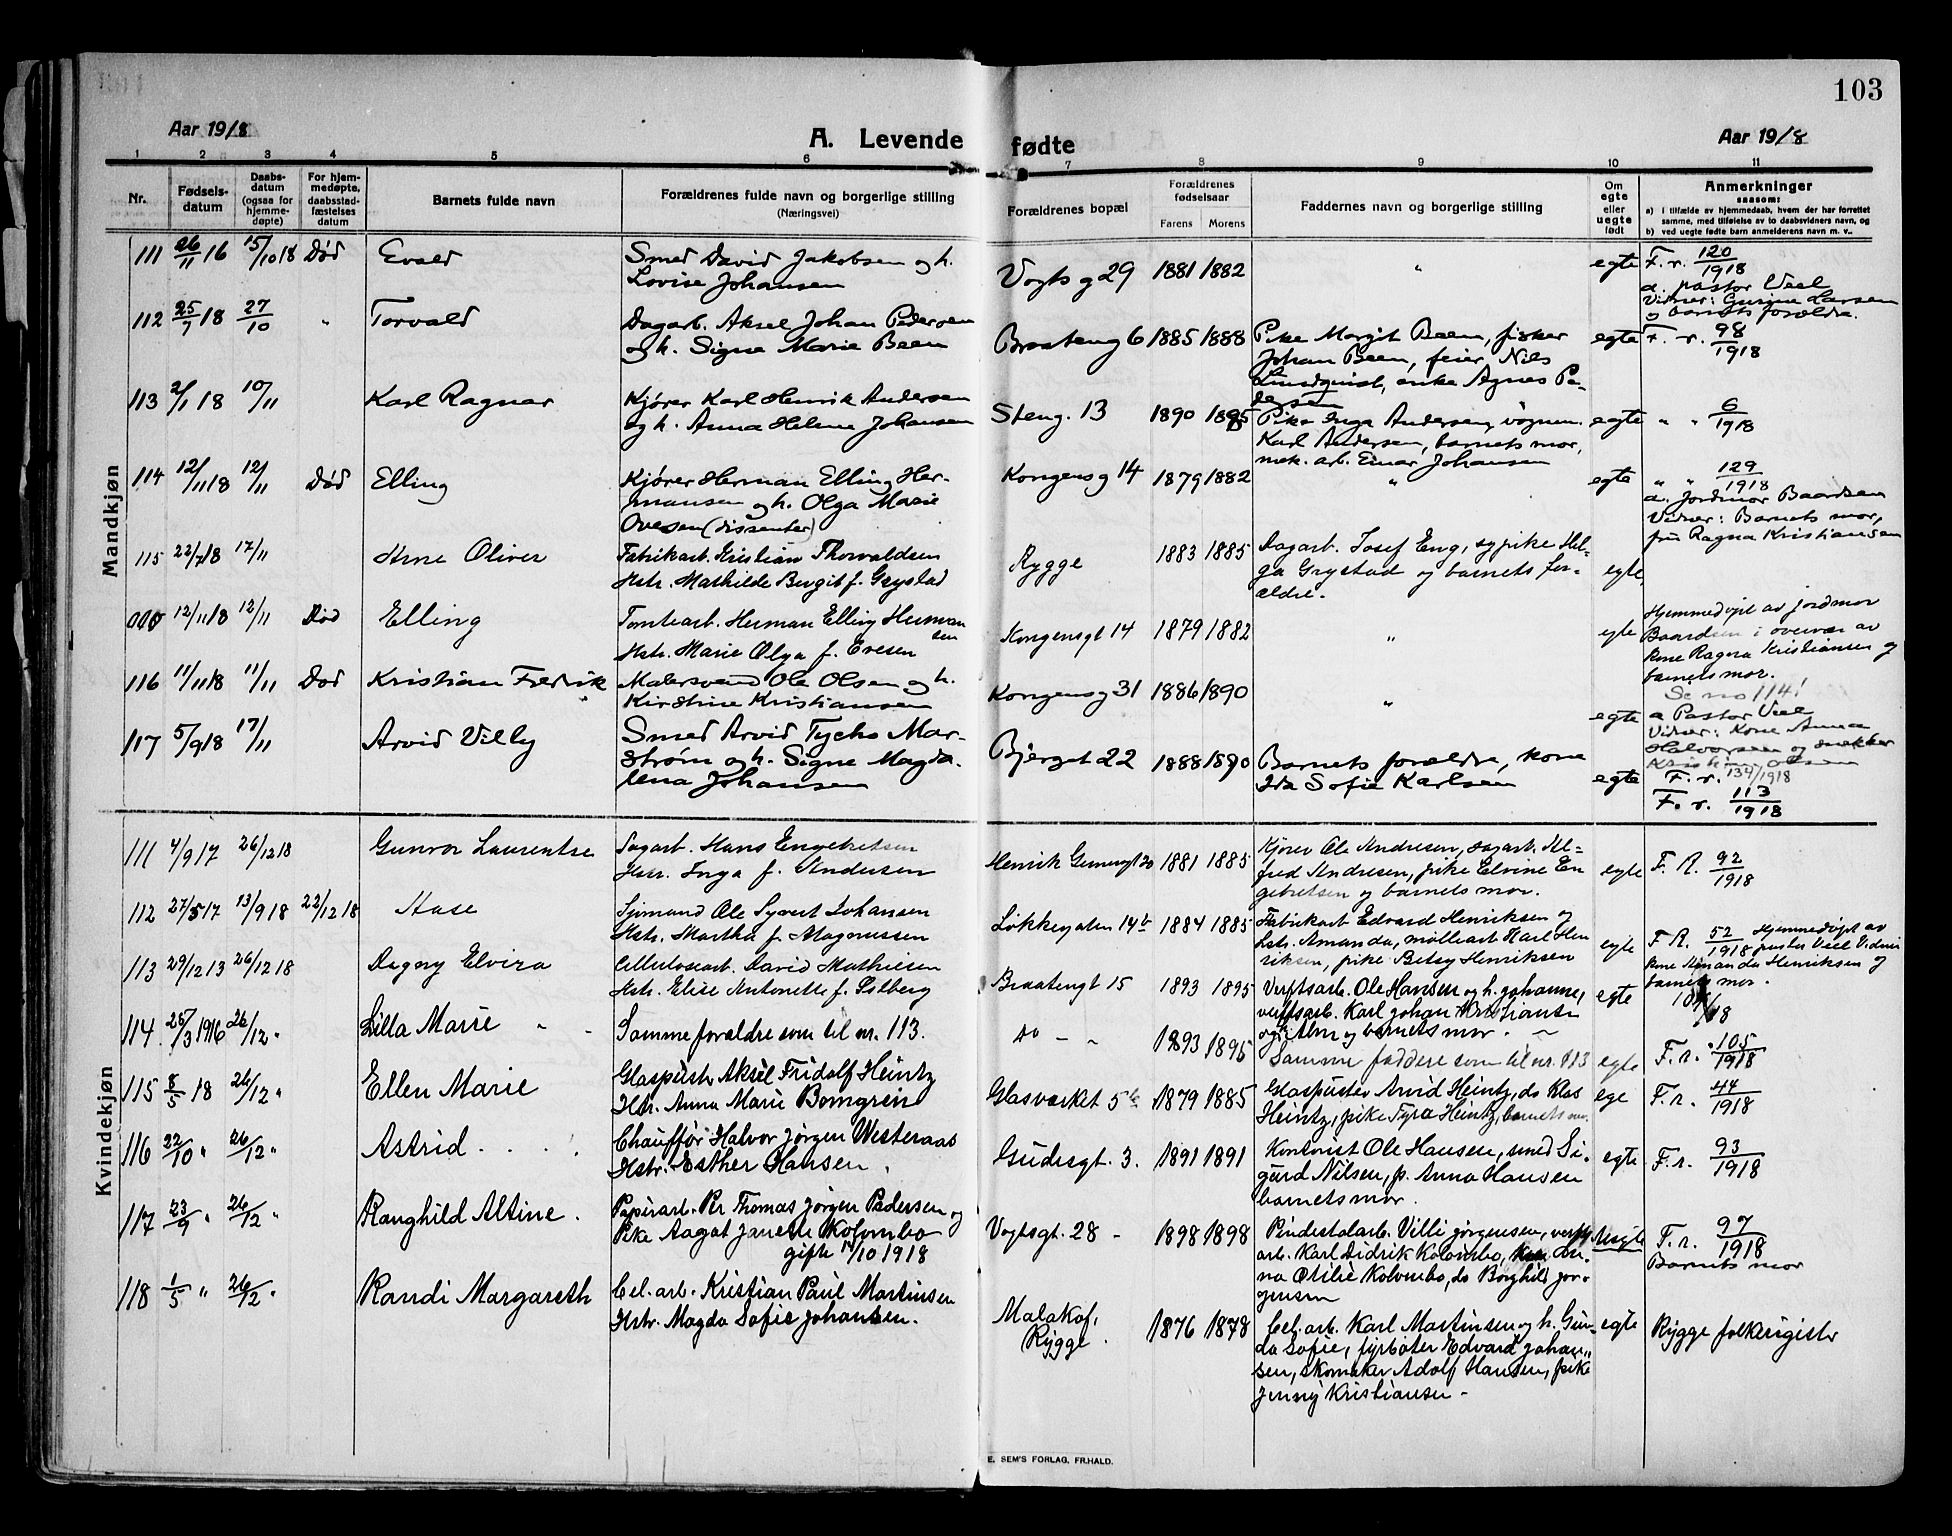 103
Aar 1918
A. Levende fødte
Aar 1918
1 2 3 4 5 6 7 8 9 10 11
Nr.
Fødsels-
datum
Daabs-
datum
(ogsaa for
hjemme-
døpte)
For hjem-
medøpte,
daabsstad-
fæstelses
datum
Barnets fulde navn
Forældrenes fulde navn og borgerlige stilling
(Næringsvei)
Forældrenes bopæl
Forældrenes
fødselsaar
Farens Morens
Faddernes navn og borgerlige stilling
Om
egte
eller
uegte
født
Anmerkninger
saasom:
a) i tilfælde av hjemmedaab, hvem der har forrettet
samme, med tilføielse av to daabsvidners navn, og
b) ved uegte fødte barn anmelderens navn m. v..
Mandkjøn
111 26/11 16 15/10 18 Død Evald
Smed David Jakobsen og h.
Lovise Johansen
Vogts g 29 1881 1882 " egte F. r. 120/1918
a. pastor Veel
Vidner: Gurine Larsen
og barnets forældre.
112 25/7 18 27/10 " Torvald
Dagarb. Aksel Johan Pedersen
og h. Signe Marie Been
Braateng 6 1885 1888
Pike Margit Been, fisker
Johan Been, feier, Nils
Lindquist, enke Agnes Pe-
dersen
egte F. r. 98/1918
113 2/1 18 10/11 Karl Ragnar
Kjører Karl Henrik Andersen
og h. Anna Helene Johansen
Steng. 13 1890 1895
Pike Inga Andersen, vognm.
Karl Andersen, barnets mor,
mek. arb. Einar Johansen
egte " " 6/1918
114 12/11 18 12/11 Død Elling
Kjører Herman Elling Her-
mansen og h. Olga Marie
Ovesen (dissenter)
Kongens g 14 1879 1882 " egte " " 129/1918
a. Jordmor Baardsen
Vidner: Barnets mor,
fru Ragna Kristiansen
115 22/7 18 17/11 Arne Oliver
Fabrikarb. Kristian Thorvaldsen
Hstr. Mathilde Bergit f. Grystad
Rygge 1883 1885
Dagarb. Josef Eng, sypike Hel-
ga Grystad og barnets for-
ældre.
egte
000 12/11 18 12/11 Død Elling
Tomtearb. Herman Elling Herman
sen
Hstr. Marie Olga f. Evesen
Kongensgt 14 1879 1882 " egte
Hjemmedøpt av jordmor
Baardsen i overvær av
kone Ragna Kristiansen og
barnets mor.
Se no 114!
116 11/11 18 11/11 Død Kristian Fredrik
Malersvend Ole Olsen og h.
Kirstine Kristiansen
Kongens g 31 1886 1890 " egte
a Pastor Veel
Vidner: Kone Anna
Halvorsen og snekker
Kristian Olsen
F. r. 134/1918
117 5/9 18 17/11 Arvid Villy
Smed Arvid Tycho Mar-
strøm og h. Signe Magda-
lena Johansen
Bjerget 22 1888 1890
Barnets forældre, kone
Ida Sofie Karlsen
egte F. r. 113/1918
Kvindekjøn
111 4/9 17 26/12 18 Gunvor Laurentse
Sagarb. Hans Engebretsen
Hstr. Inga f. Andersen
Henrik Gernersgt 20 1881 1885
Kjører Ole Andresen, sagarb. Al-
fred Andresen, pike Elvine En
gebretsen og barnets mor.
egte F. R. 92/1918
112 27/5 17 13/9 18 22/12 18 Aase
Sjømand Ole Syvert Johansen
Hstr. Martha f. Magnussen
Løkkegaten 14b 1884 1885
Fabrikarb Edvard Henriksen og
hstr. Amanda, møllearb Karl Hen
riksen, pike Betsy Henriksen
egte F R. 52/1918 Hjemmedøpt av
pastor Veel Vidner
kone Amanda Henriksen og
barnets mor.
113 29/12 13 26/12 18 Dagny Elvira
Cellulosearb. David Mathiesen
Hstr. Elise Antonette f. Solberg
Braatengt 15 1893 1895
Verftsarb. Ole Hansen og h. Johanne,
verftsarb. Karl Johan Kristianse
og Alm og barnets mor.
egte
114 26/3 1916 26/12 " Lilla Marie
Samme forældre som til nr. 113.
do - " 1893 1895
Samme faddere som til nr. 113
egte F. r. 105/1918
115 8/5 18 26/12 " Ellen Marie
Glaspuster Aksel Fridolf Heintz
Hstr. Anna Marie Bomgren
Glasværket 5 1879 1885
Glaspuster Arvid Heintz, do Klas
Heintz, pike Tyra Heintz, barnets mor.
ege F. r. 44/1918
116 22/10 " 26/12 " Astrid
Chauffør Halvor Jørgen Westeraas
Hstr. Esther Hansen.
Gudesgt. 3. 1891 1891
Kontorist Ole Hansen, smed Si-
gurd Nilsen, p. Anna Hansen
barnets mor.
egte F. r. 93/1918
117 23/9 " 26/12 " Ranghild Altine.
Papirarb. Per Thomas Jørgen Pedersen og
Pike Aagot Janette Kolombo
gifte 14/10 1918
Vogtsgt. 28 - 1898 1898
Pindestolarb. Villi Jørgensen, verfts
arb. Karl Didrik Kolombo, Kone An-
na Otilie Kolombo, do Borghild Jør-
gensen
Uegte F. r. 97/1918
Barnets mor
118 1/5 " 26/12 " Randi Margareth
Cel. arb. Kristian Paul Martinsen
Hstr. Magda Sofie Johansen.
Malakof,
Rygge. 1876 1878
Cel. arb. Karl Martinsen og h. Gun-
da Sofie, fyrbøter Edvard Johan-
sen, skomaker Adolf Hansen, pike
Jenny Kristiansen -
egte Rygge folkerigister
E. SEM'S FORLAG, FR.HALD.